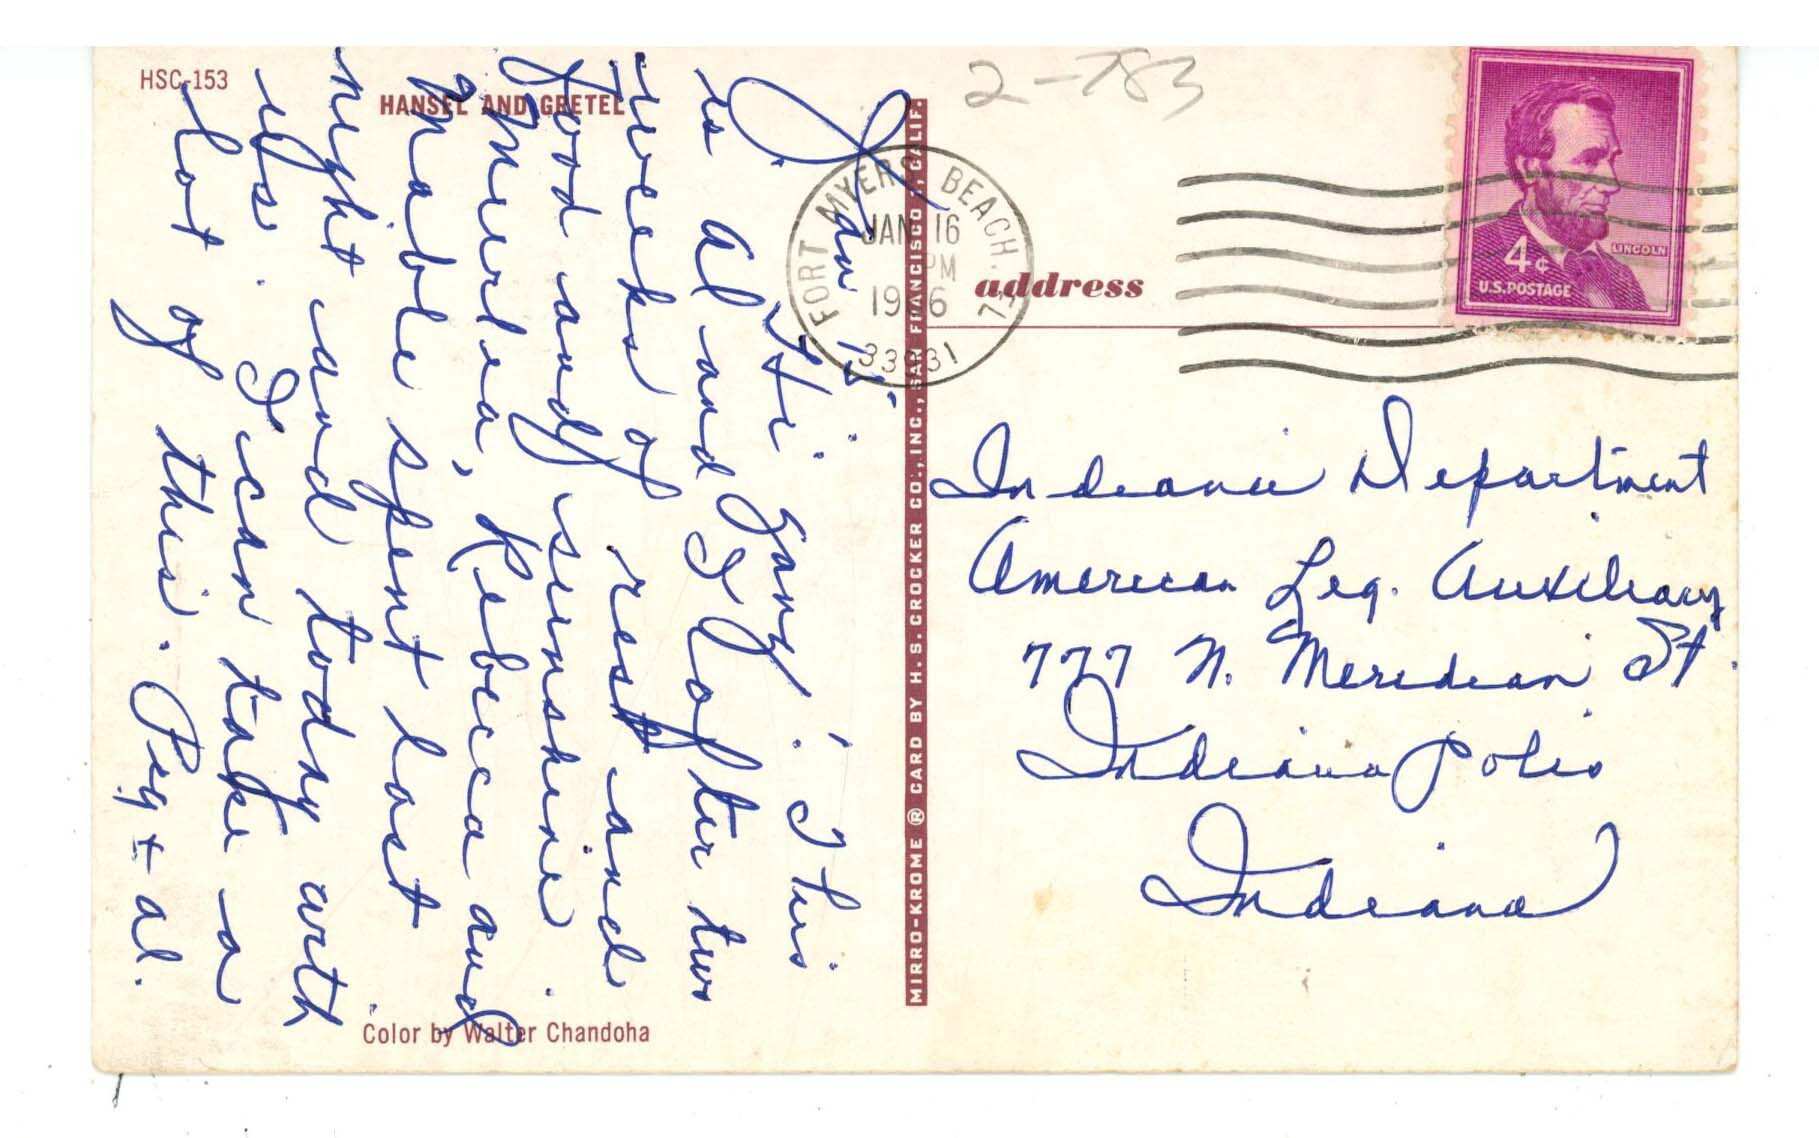 HSC-153
HANSEL AND GRETEL
Jan 15.
Hi Gang! This
is Al and I after two
weeks of rest and
food and sunshine.
Murlea, Rebecca and
Mable spent last
night and today with
us. I can take a
lot of this. Peg + al.
Color by Walter Chandoha
MIRRO-KROME ® CARD BY H. S. CROCKER CO., INC., SAN FRANCISCO, CALIF.
2-783
FORT MYERS BEACH.
JAN 16
PM
33931
address
LINCOLN
4¢
U.S. POSTAGE
Indiana Department
American Leg. Auxiliary
777 N. Meridian St.
Indianapolis
Indiana